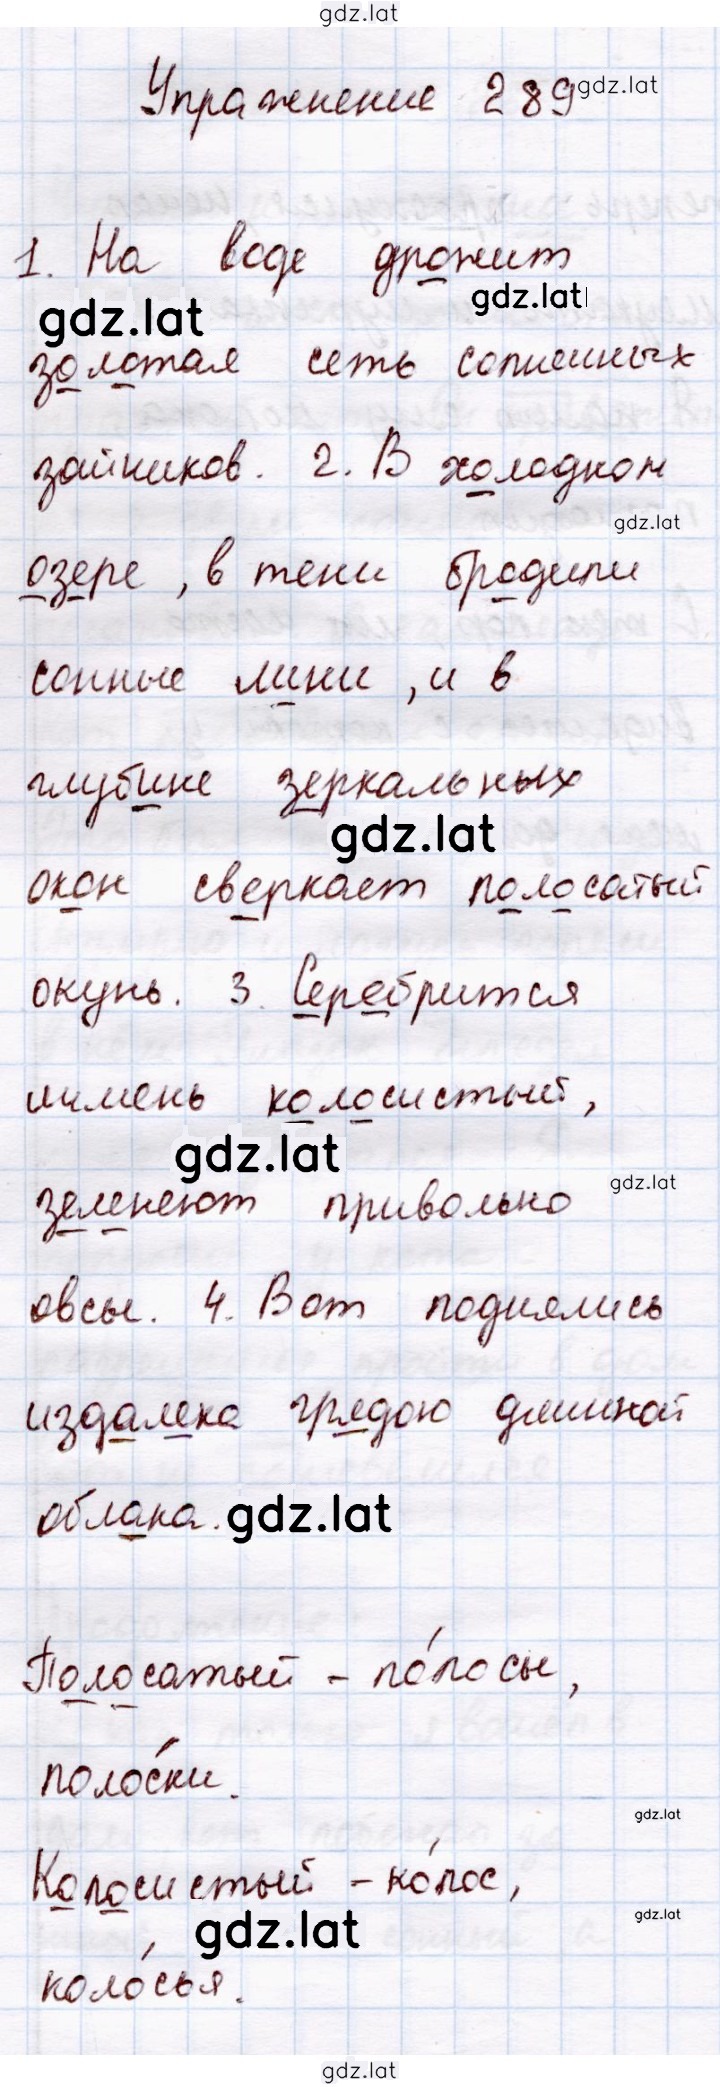 gdz.lat
Упражнение 289 gdz.lat
1. На воде дрожит
gdz.lat gdz.lat
золотая сеть солнечных
зайчиков. 2. В холодном
gdz.lat
озере, в тени бродили
сонные лини, и в
глубине зеркальных
gdz.lat
окон сверкает полосатый
окунь. 3. Серебрится
ячмень колосистый,
gdz.lat
gdz.lat
зеленеют привольно
овсы. 4. Вот поднялись
издалека грядою длинной
облака. gdz.lat
Полосатый - по́лосы,
поло́ски.
gdz.lat
Колосистый - ко́лос,
gdz.lat gdz.lat
коло́сья.
gdz.lat